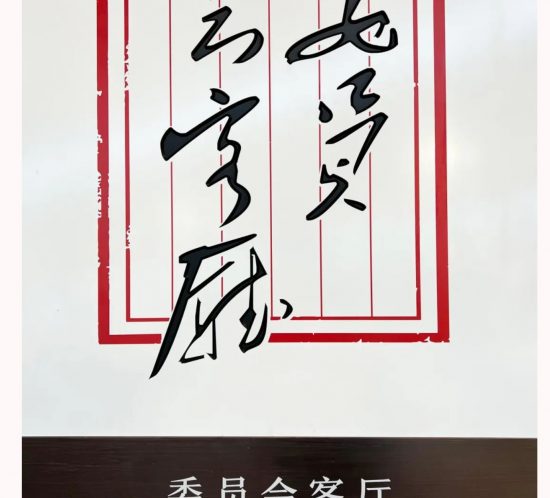 委员
会客厅
委员会客厅